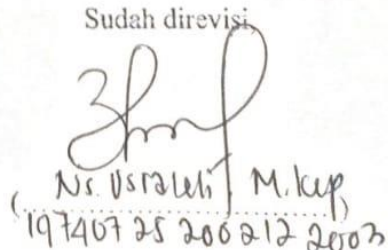 Sudah direvisi
Ns. Usraleli M.Kep
(....................)
19740725 200212 2003